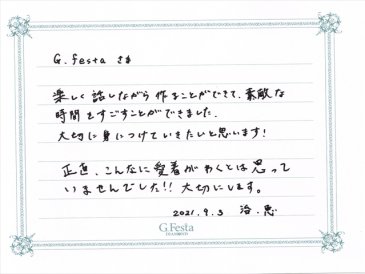 G.festa さま
楽しく話しながら作ることができて、素敵な
時間をすごすことができました。
大切に身につけていきたいと思います!
正直、こんなに愛着がわくとは思って
いませんでした!!大切にします。
2021.9.5 洛.恵
G.Festa
DIAMOND